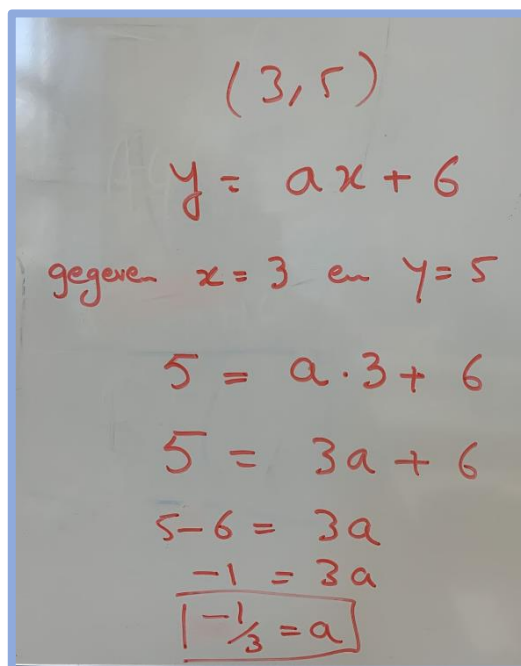 (3,5)
y = ax + 6
gegeven x = 3 en y = 5
5 = a · 3 + 6
5 = 3a + 6
5 - 6 = 3a
-1 = 3a
-1/3 = a